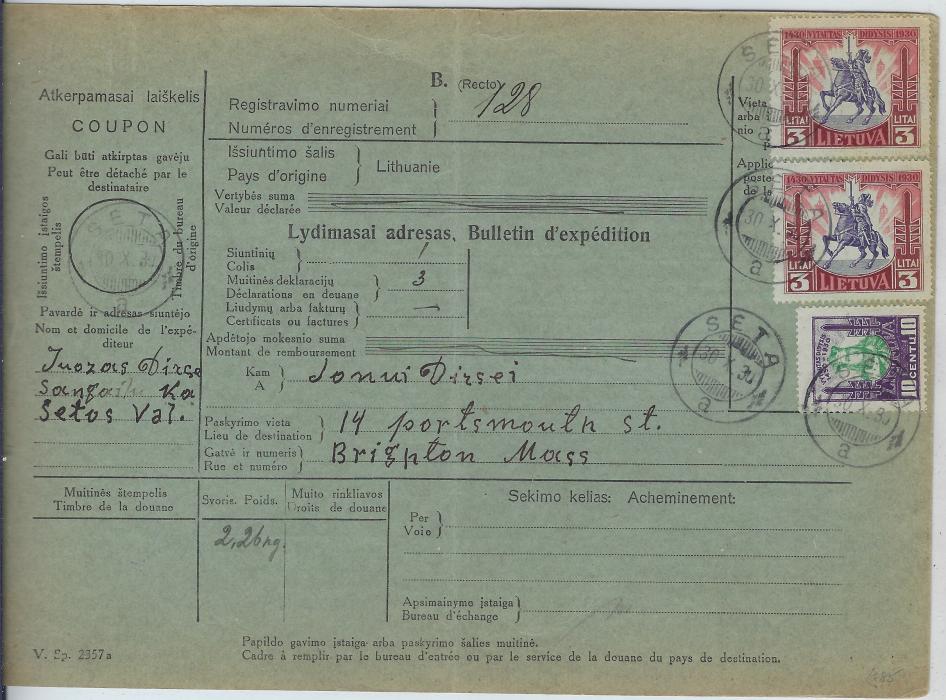 Atkerpamasai laiškelis
COUPON
Gali būti atkirptas gavėju
Peut être détaché par le
destinataire
Išsiuntimo įstaigos
štempelis
Timbre du bureau
d'origine
SETA
30 X. 30
a
Pavardė ir adresas siuntėjo
Nom et domicile de l'expé-
diteur
Juozas Dirse
Sangailu Ka
Šetos Val.
B. (Recto)
Registravimo numeriai
Numéros d'enregistrement
128
Išsiuntimo šalis
Pays d'origine
Lithuanie
Vertybės suma
Valeur déclarée
Lydimasai adresas, Bulletin d'expédition
Siuntinių
Colis
1
Muitinės deklaracijų
Déclarations en douane
3
Liudymų arba fakturų
Certificats ou factures
—
Apdėtojo mokesnio suma
Montant de remboursement
Kam
A
Jonui Dirsei
Paskyrimo vieta
Lieu de destination
14 portsmouth st.
Gatvė ir numeris
Rue et numéro
Brigpton Mass
Vieta
arba
nio
P
Applic
poste
de la
1430 VYTAUTAS DIDYSIS 1930
LITAI
3 LIETUVA 3
1430 VYTAUTAS DIDYSIS 1930
LITAI
3 LIETUVA 3
10 CENTŲ 10
SETA
30 X. 30
a
Muitinės štempelis
Timbre de la douane
Svoris. Poids.
2,26 kg.
Muito rinkliavos
Droits de douane
Sekimo kelias: Acheminement:
Per
Voie
Apsimainymo įstaiga
Bureau d'échange
Papildo gavimo įstaiga arba paskyrimo šalies muitinė.
Cadre à remplir par le bureau d'entrée ou par le service de la douane du pays de destination.
V. Sp. 2357a